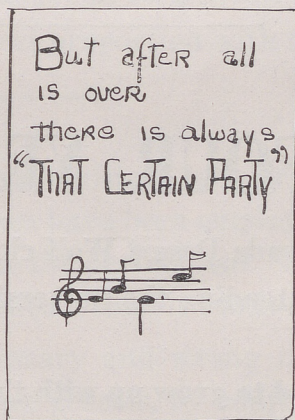 But after all
is over
there is always
“THAT CERTAIN PARTY”